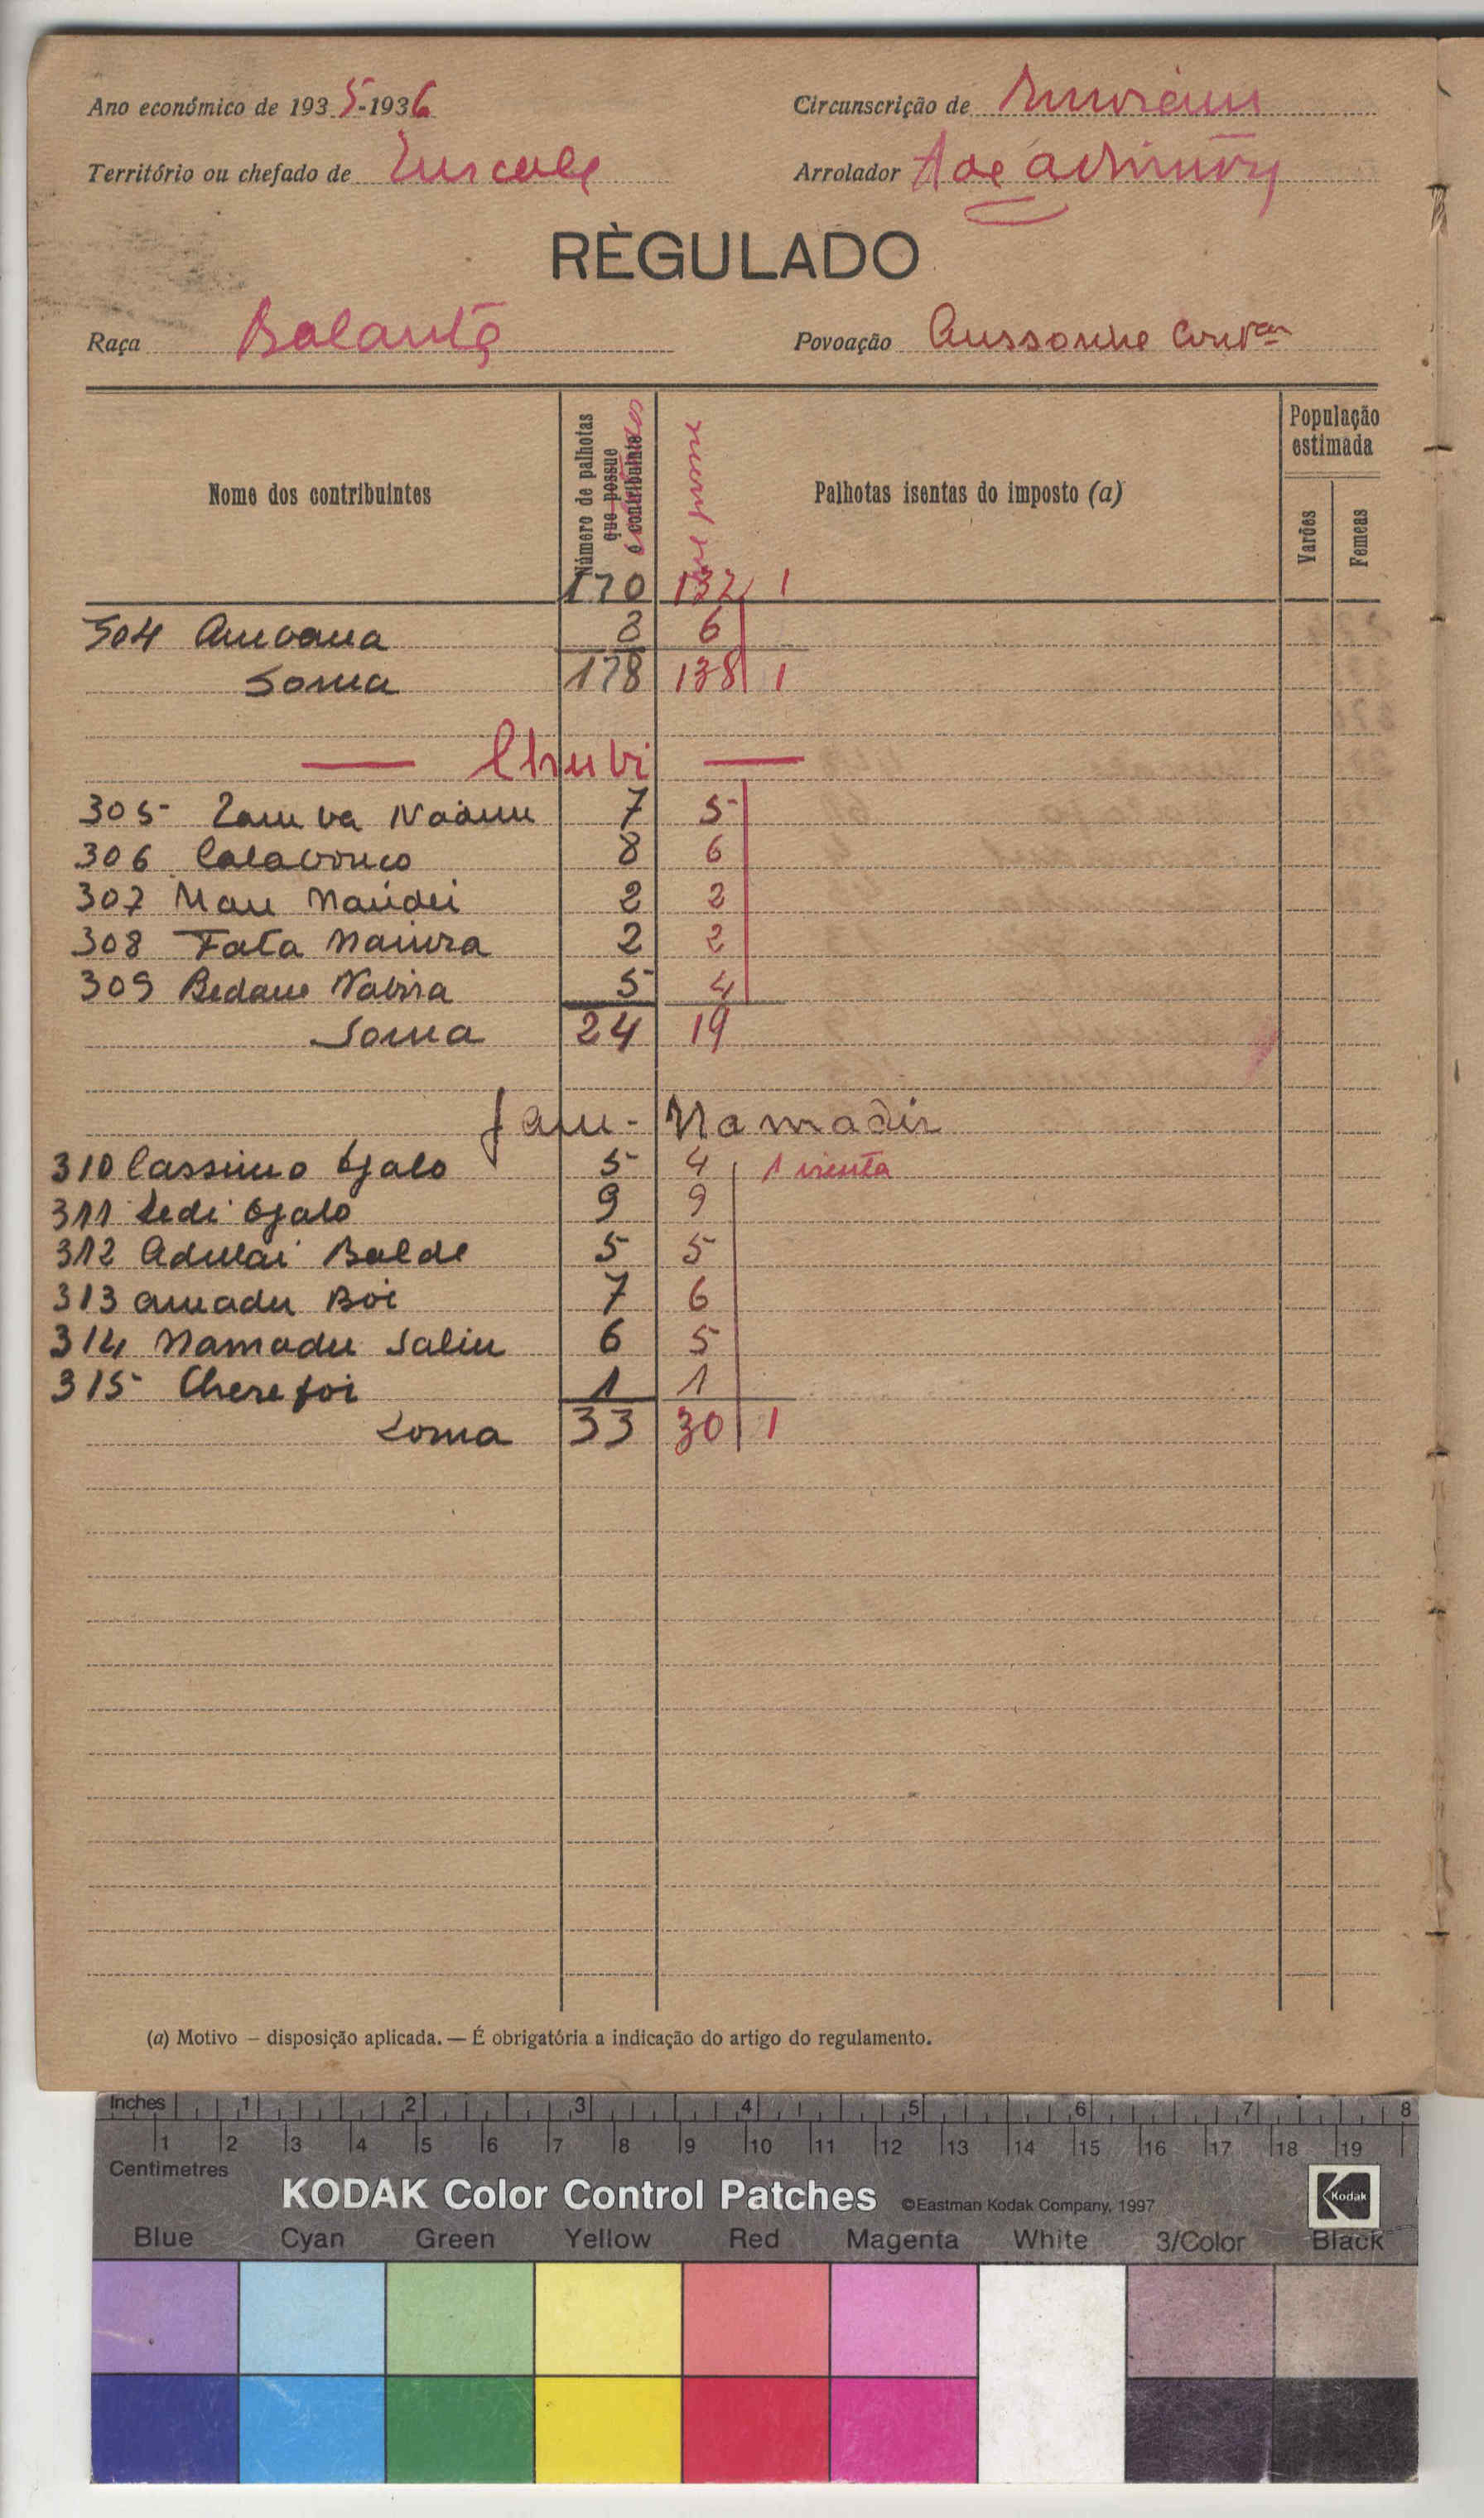 Ano económico de 1935-1936
Circunscrição de
Território ou chefado de
Arrolador A de
RÈGULADO
Raça Balanta
Povoação Cussonhe
Nome dos contribuintes
Número de palhotas que possue o contribuinte
Palhotas isentas do imposto (a)
População estimada
Varões
Femeas
170 132 1
304 8 6
Soma 178 138 1
— Chubi —
305 7 5
306 8 6
307 2 2
308 Fata 2 2
309 Bedam 5 4
Soma 24 19
Jau-Mamadir
310 Cassimo Djalo 5 4 1 isenta
311 Ledi Djalo 9 9
312 Adulai Balde 5 5
313 Amadu Boi 7 6
314 Mamadu Saliu 6 5
315 Cherefoi 1 1
Soma 33 30 1
(a) Motivo — disposição aplicada. — É obrigatória a indicação do artigo do regulamento.
Inches 1 2 3 4 5 6 7 8
1 2 3 4 5 6 7 8 9 10 11 12 13 14 15 16 17 18 19
Centimetres
KODAK Color Control Patches ©Eastman Kodak Company, 1997 Kodak
Blue Cyan Green Yellow Red Magenta White 3/Color Black